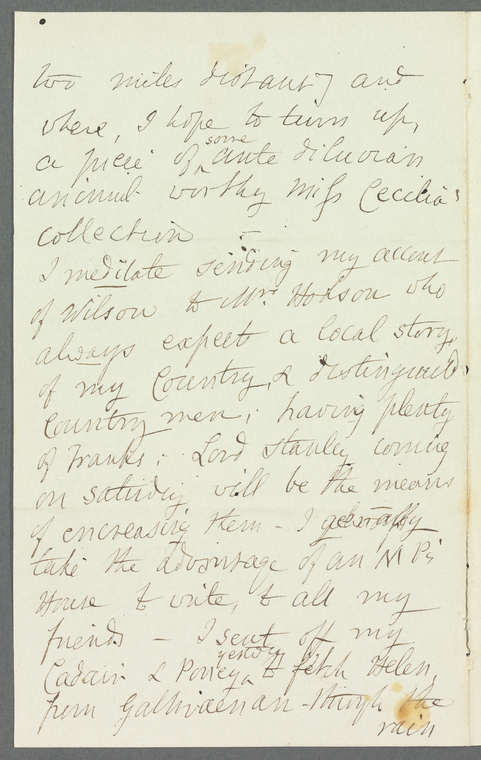 two miles distant, and
where, I hope to turn up,
a piece of some ante diluvian
animal worthy Miss Cecilia's
collection —
I meditate sending my account
of Wilson to Mrs. Hodson who
always expects a local story,
of my Country, & distinguished
Country men; having plenty
of Franks; Lord Stanley coming
on saturday will be the means
of encreasing them — I generally
take the advantage of an M P's
House to write, to all my
friends — I sent off my
& yesterday to fetch Helen,
from — though the
rain